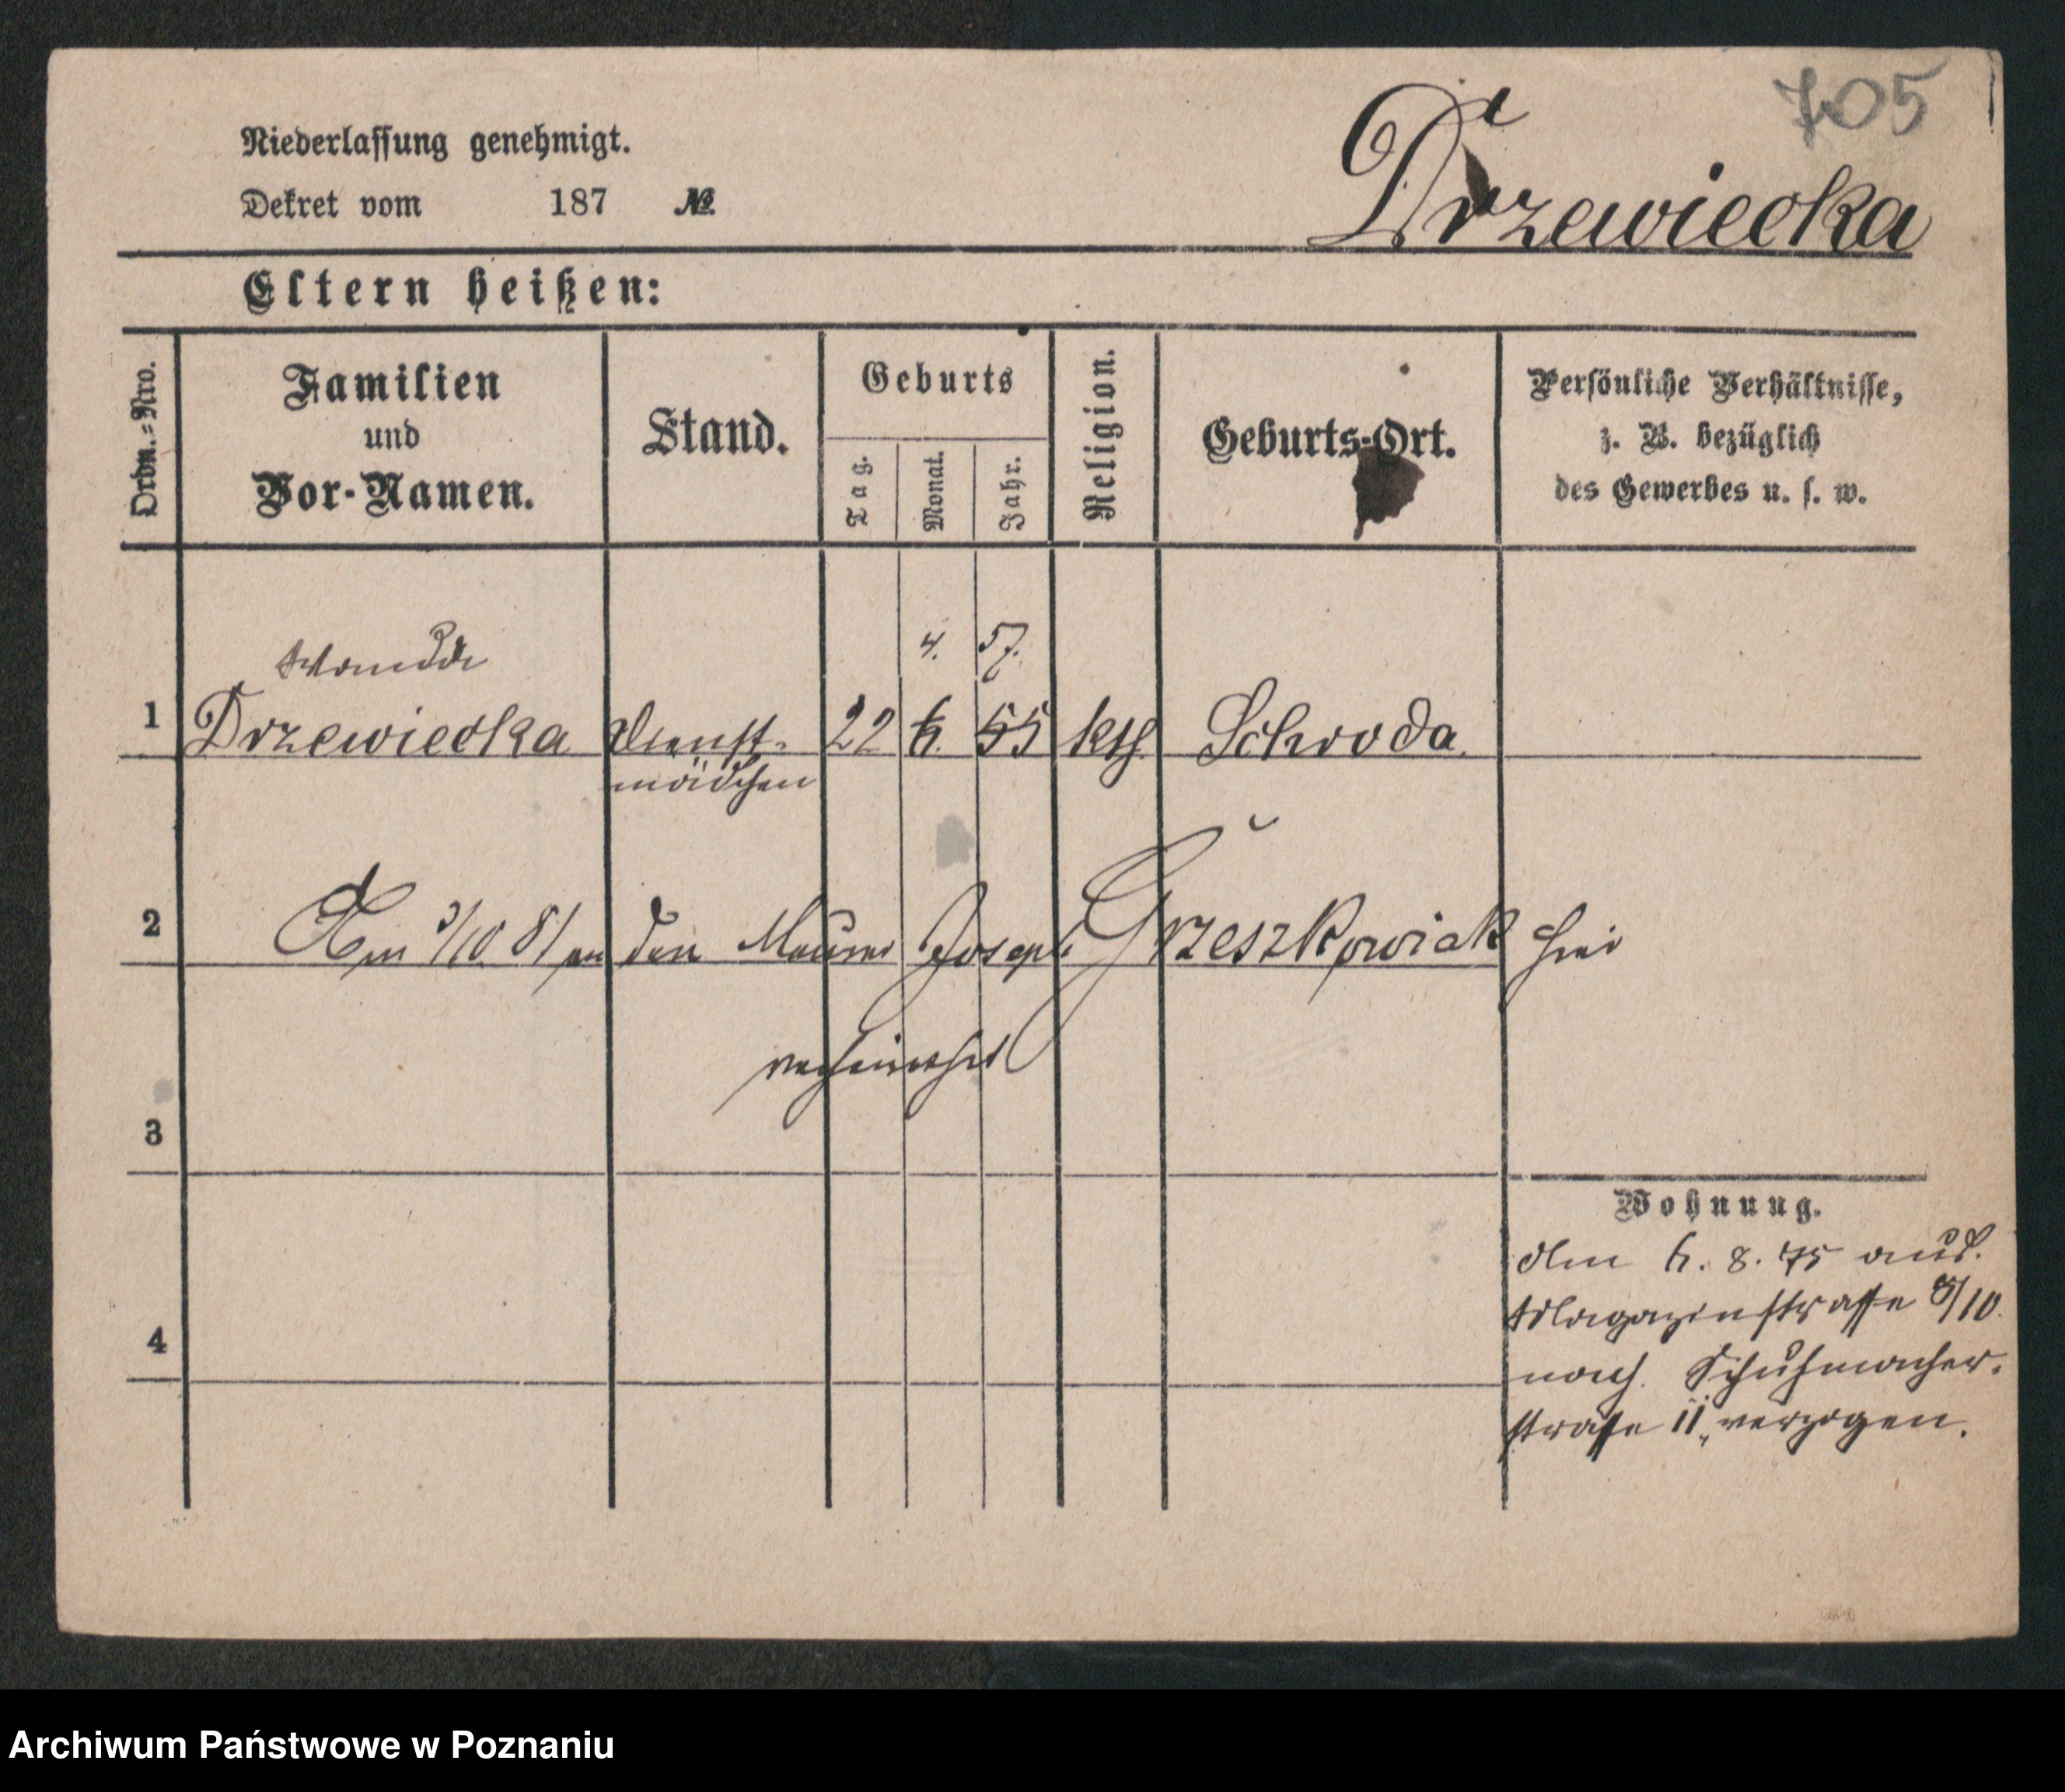 705
Niederlassung genehmigt.
Dekret vom 187 №
Drzewiecka
Eltern heißen:
Ordn.-Nro.
Familien und Vor-Namen.
Stand.
Geburts
Tag.
Monat.
Jahr.
Religion.
Geburts-Ort.
Persönliche Verhältnisse, z. B. bezüglich des Gewerbes u. s. w.
4. 57.
1 Drzewiecka Dienst- 22 6. 55 kth Schroda.
mädchen
2 Am 3/10. 81 an den Maurer Joseph Grzeszkowiak hier
verheirathet
3
Wohnung.
Am 6. 8. 75 aus.
Magazinstrasse 9/10.
4
nach Schuhmacher-
strasse 11, verzogen.
Archiwum Państwowe w Poznaniu